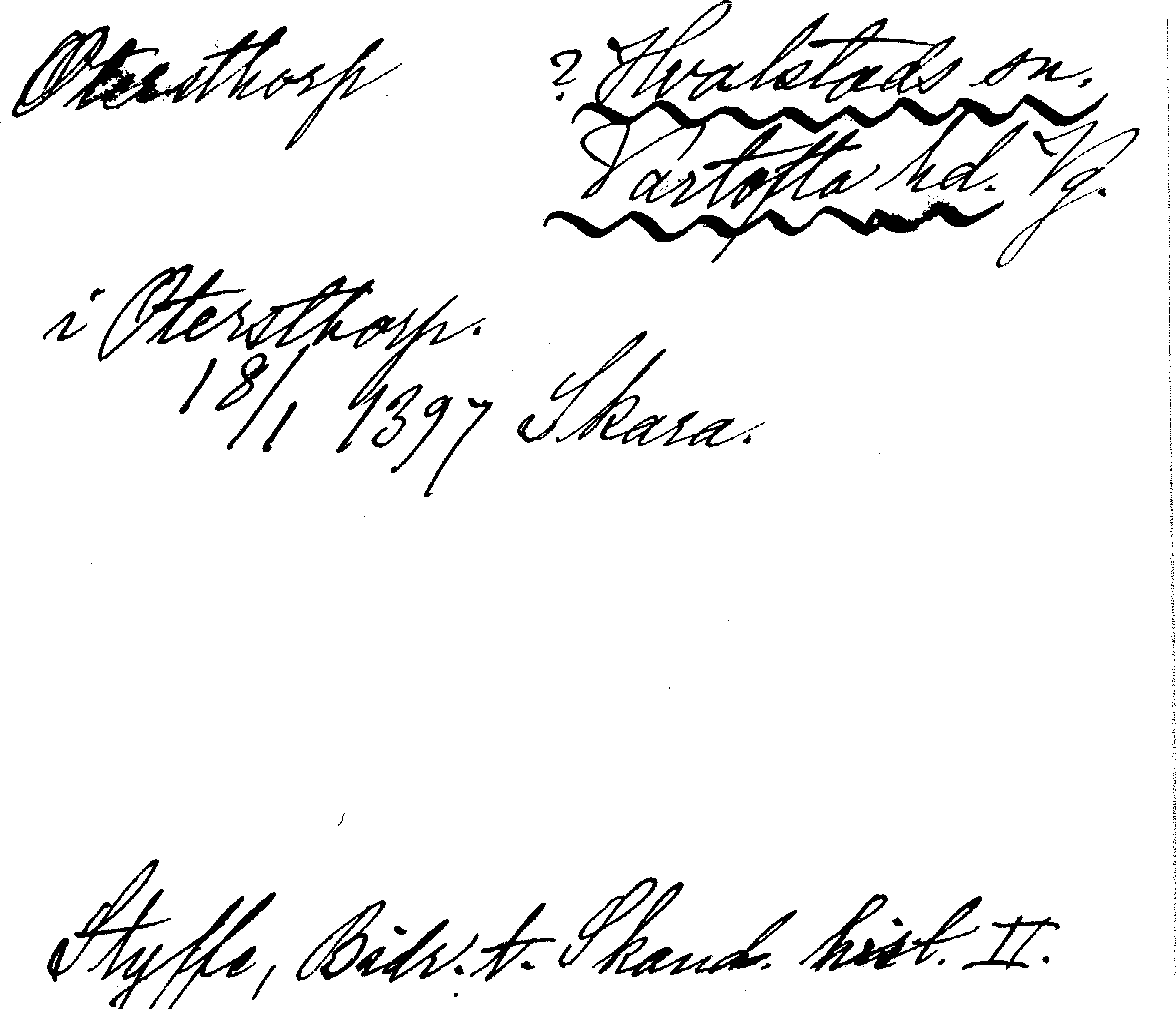 Otersthorp ? Hvalstads sn.
Vartofta hd. Vg.
i Otersthorp.
18/1 1397 Skara.
Styffe, Bidr. t. Skand. hist. II.